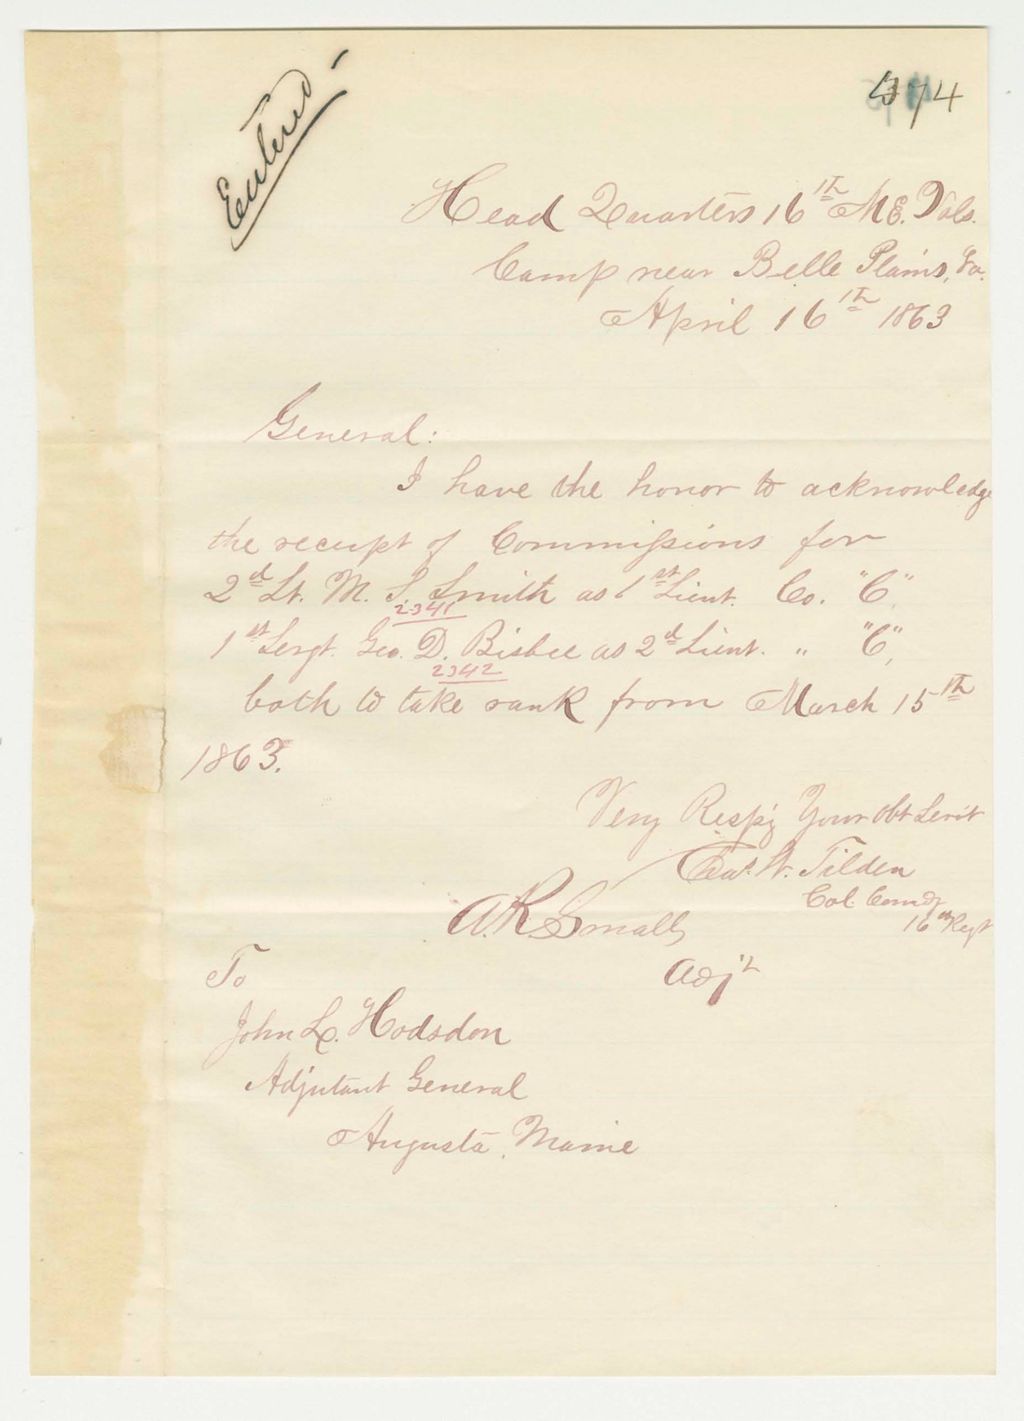 Entered
Head Quarters 16th ME. Vols.
Camp near Belle Plains, Va.
April 16th 1863
General:
I have the honor to acknowledge
the receipt of Commissions for
2d Lt. M. S. Smith as 1st Lieut. Co. "C",
2341
1st Sergt. Geo. D. Bisbee as 2d Lieut. " "C",
2342
both to take rank from March 15th
1863.
Very Resp'y Your Obt Servt
Chas. W. Tilden
Col Comdg
16th Regt
A. R. Small
Adjt
To
John L. Hodsdon
Adjutant General
Augusta, Maine